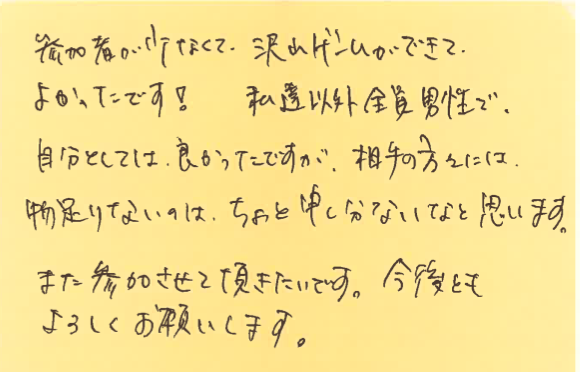 参加者が少なくて、沢山ゲームができて、
よかったです! 私達以外全員男性で、
自分としては、良かったですが、相手の方々には、
物足りないのは、ちょっと申し分ないなと思います。
また参加させて頂きたいです。今後とも
よろしくお願いします。